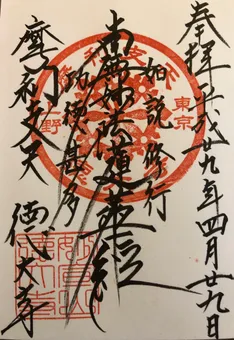 奉拝 平成廿九年四月廿九日
東京
如説修行
南無妙法蓮華経
功徳甚多
上野
摩利支天
徳大寺